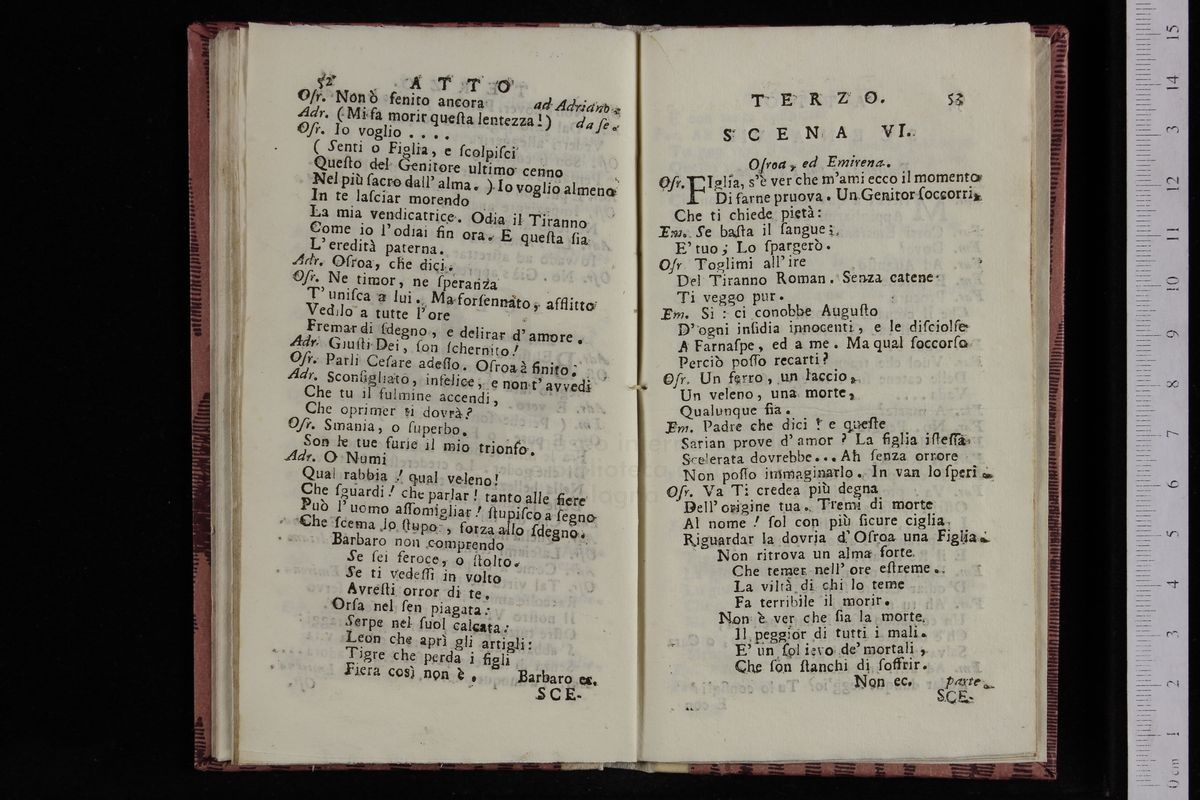 52 ATTO
Oſr. Non ò fenito ancora ad Adriano.
Adr. (Mi fa morir queſta lentezza!) da ſe.
Oſr. Io voglio ....
( Senti o Figlia, e ſcolpiſci
Queſto del Genitore ultimo cenno
Nel più ſacro dall' alma. ) Io voglio almeno
In te laſciar morendo
La mia vendicatrice. Odia il Tiranno
Come io l'odiai fin ora. E queſta ſia
L'eredità paterna.
Adr. Oſroa, che dici.
Oſr. Ne timor, ne ſperanza
T'uniſca a lui. Ma forſennato, afflitto
Vedilo a tutte l'ore
Fremar di ſdegno, e delirar d'amore.
Adr. Giuſti Dei, ſon ſchernito!
Oſr. Parli Ceſare adeſſo. Oſroa à finito.
Adr. Sconſigliato, infelice, e non t'avvedi
Che tu il fulmine accendi,
Che oprimer ti dovrà?
Oſr. Smania, o ſuperbo.
Son le tue furie il mio trionfo.
Adr. O Numi
Qual rabbia! qual veleno!
Che ſguardi! che parlar! tanto alle fiere
Può l'uomo aſſomigliar! ſtupiſco a ſegno
Che ſcema lo ſtupo, forza allo ſdegno.
Barbaro non comprendo
Se ſei feroce, o ſtolto.
Se ti vedeſſi in volto
Avreſti orror di te.
Orſa nel ſen piagata:
Serpe nel ſuol calcata:
Leon che aprì gli artigli:
Tigre che perda i figli
Fiera così non è. Barbaro ec.
SCE-
TERZO. 53
SCENA VI.
Oſroa, ed Emirena.
Oſr. FIglia, s'è ver che m'ami ecco il momento
Di farne pruova. Un Genitor ſoccorri,
Che ti chiede pietà:
Em. Se baſta il ſangue;
E' tuo; Lo ſpargerò.
Oſr Toglimi all'ire
Del Tiranno Roman. Senza catene
Ti veggo pur.
Em. Si: ci conobbe Auguſto
D'ogni inſidia innocenti, e le diſciolſe
A Farnaſpe, ed a me. Ma qual ſoccorſo
Perciò poſſo recarti?
Oſr. Un ferro, un laccio,
Un veleno, una morte,
Qualunque ſia.
Em. Padre che dici! e queſte
Sarian prove d'amor? La figlia iſteſſa
Scelerata dovrebbe... Ah ſenza orrore
Non poſſo immaginarlo. In van lo ſperi.
Oſr. Va Ti credea più degna
Dell'origine tua. Tremi di morte
Al nome! ſol con più ſicure ciglia
Riguardar la dovria d'Oſroa una Figlia.
Non ritrova un alma forte
Che temer nell'ore eſtreme.
La viltà di chi lo teme
Fa terribile il morir.
Non è ver che ſia la morte
Il peggior di tutti i mali.
E' un ſol ievo de' mortali,
Che ſon ſtanchi di ſoffrir.
Non ec. parte.
SCE-
15
14
13
12
11
10
9
8
7
6
5
4
3
2
1
0 cm